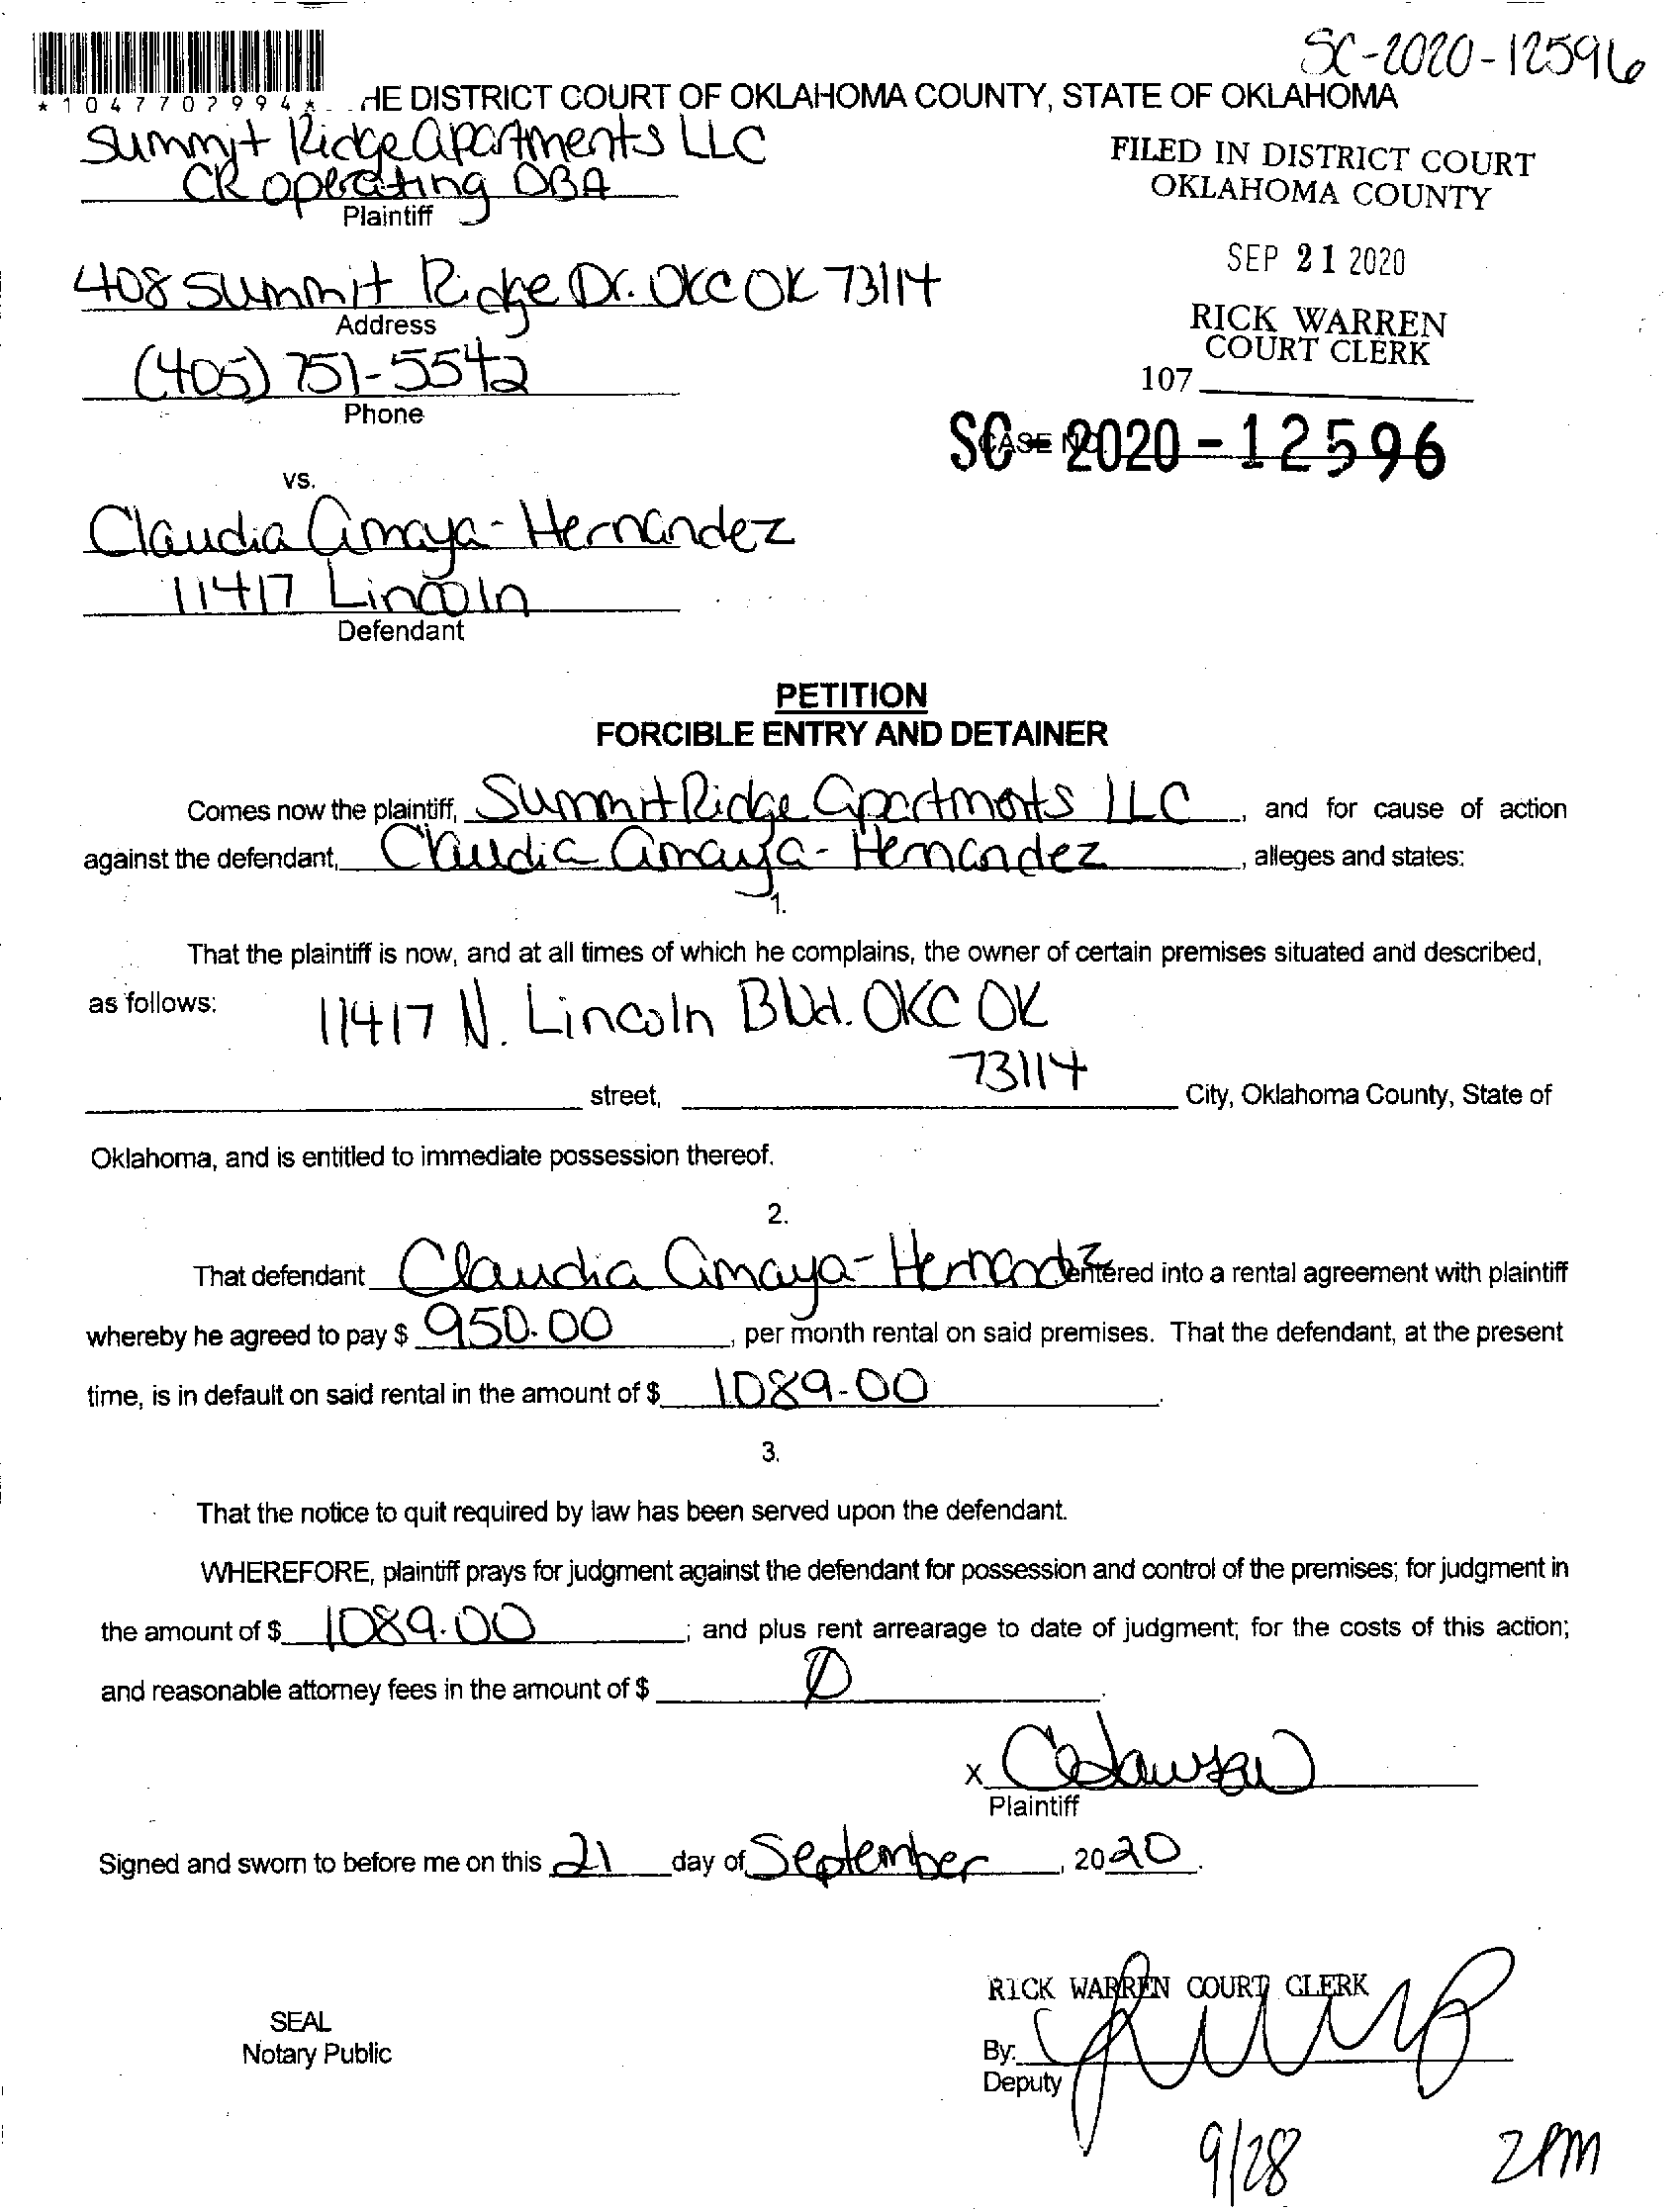 SC-2020-12596
*1047702994*
HE DISTRICT COURT OF OKLAHOMA COUNTY, STATE OF OKLAHOMA
Summit Ridge Apartments LLC
CR Operating DBA
Plaintiff
FILED IN DISTRICT COURT
OKLAHOMA COUNTY
SEP 21 2020
RICK WARREN
COURT CLERK
107
408 Summit Ridge Dr. OKC OK 73114
Address
(405) 751-5542
Phone
CASE NO.
SC-2020-12596
vs.
Claudia Amaya-Hernandez
11417 Lincoln
Defendant
PETITION
FORCIBLE ENTRY AND DETAINER
Comes now the plaintiff, Summit Ridge Apartments LLC, and for cause of action
against the defendant, Claudia Amaya-Hernandez, alleges and states:
1.
That the plaintiff is now, and at all times of which he complains, the owner of certain premises situated and described,
as follows: 11417 N. Lincoln Blvd. OKC OK
73114
street, City, Oklahoma County, State of
Oklahoma, and is entitled to immediate possession thereof.
2.
That defendant Claudia Amaya-Hernandez entered into a rental agreement with plaintiff
whereby he agreed to pay $ 950.00, per month rental on said premises. That the defendant, at the present
time, is in default on said rental in the amount of $ 1089.00.
3.
That the notice to quit required by law has been served upon the defendant.
WHEREFORE, plaintiff prays for judgment against the defendant for possession and control of the premises; for judgment in
the amount of $ 1089.00; and plus rent arrearage to date of judgment; for the costs of this action;
and reasonable attorney fees in the amount of $ Ø.
X
Plaintiff
Signed and sworn to before me on this 21 day of September, 2020.
RICK WARREN COURT CLERK
SEAL
Notary Public
By:
Deputy
9/28 2PM